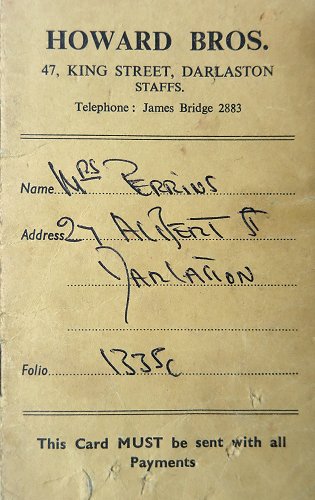 HOWARD BROS.
47, KING STREET, DARLASTON
STAFFS.
Telephone : James Bridge 2883
Name Mrs PERRINS
Address 27 ALBERT St
DARLASTON
Folio 1335c
This Card MUST be sent with all
Payments